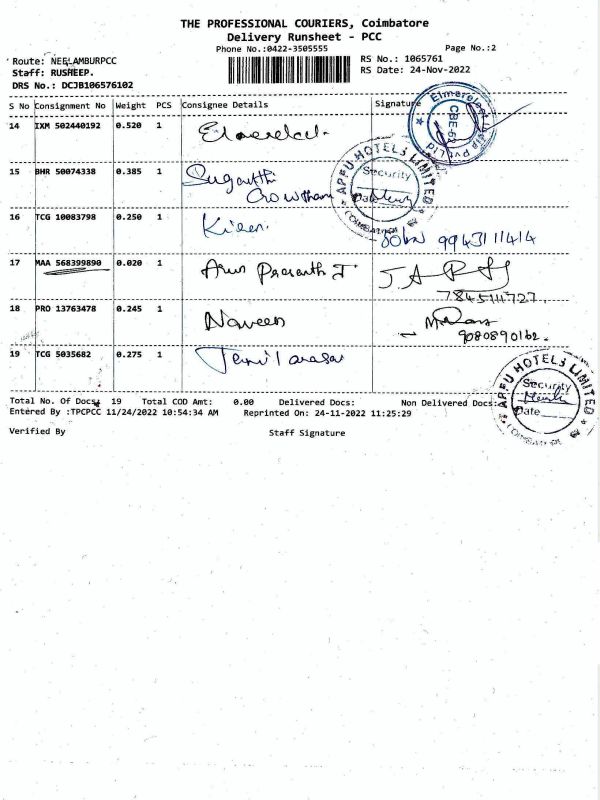 THE PROFESSIONAL COURIERS, Coimbatore
Delivery Runsheet - PCC
Phone No.:0422-3505555
Page No.:2
Route: NEELAMBURPCC
RS No.: 1065761
Staff: RUSHEEP.
RS Date: 24-Nov-2022
DRS No.: DCJB106576102
S No Consignment No Weight PCS Consignee Details Signature
14 IXM 502440192 0.520 1
Elmerolest India Pvt Ltd CBE-62
15 BHR 50074338 0.385 1 Suganthi Gowtham
APFU HOTELS LIMITED Security Date COIMBATORE
16 TCG 10083798 0.250 1 Kiren. 9943111414
17 MAA 568399890 0.020 1 Arun Prasanth J J.A
7845111727.
18 PRO 13763478 0.245 1 Naveen
9080890162.
19 TCG 5035682 0.275 1 Tamilarasan
APFU HOTELS LIMITED Security Date COIMBATORE
Total No. Of Docs: 19 Total COD Amt: 0.00 Delivered Docs: Non Delivered Docs:
Entered By :TPCPCC 11/24/2022 10:54:34 AM Reprinted On: 24-11-2022 11:25:29
Verified By Staff Signature